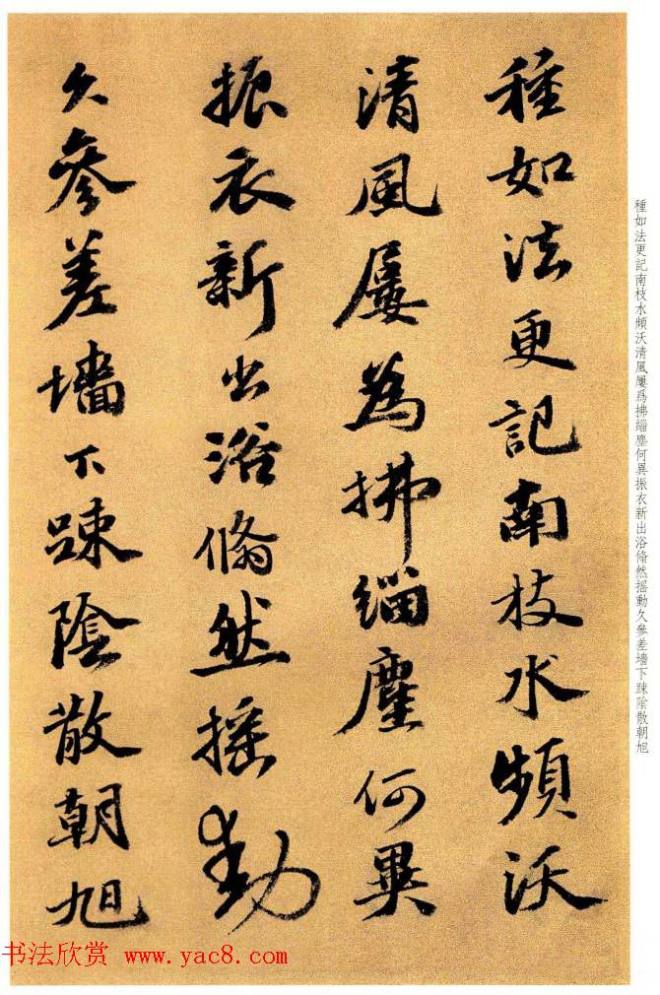 種如法更記南枝水頻沃
清風屢為拂緇塵何異
振衣新出浴翛然摇動
久參差墻下踈陰散朝旭
種如法更記南枝水頻沃清風屢爲拂緇塵何異振衣新出浴翛然摇動久參差墻下踈陰散朝旭
书法欣赏 www.yac8.com